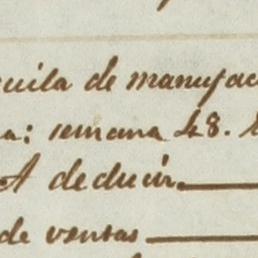 cuila de manufac
a: semana 48.
A deducir
de ventas